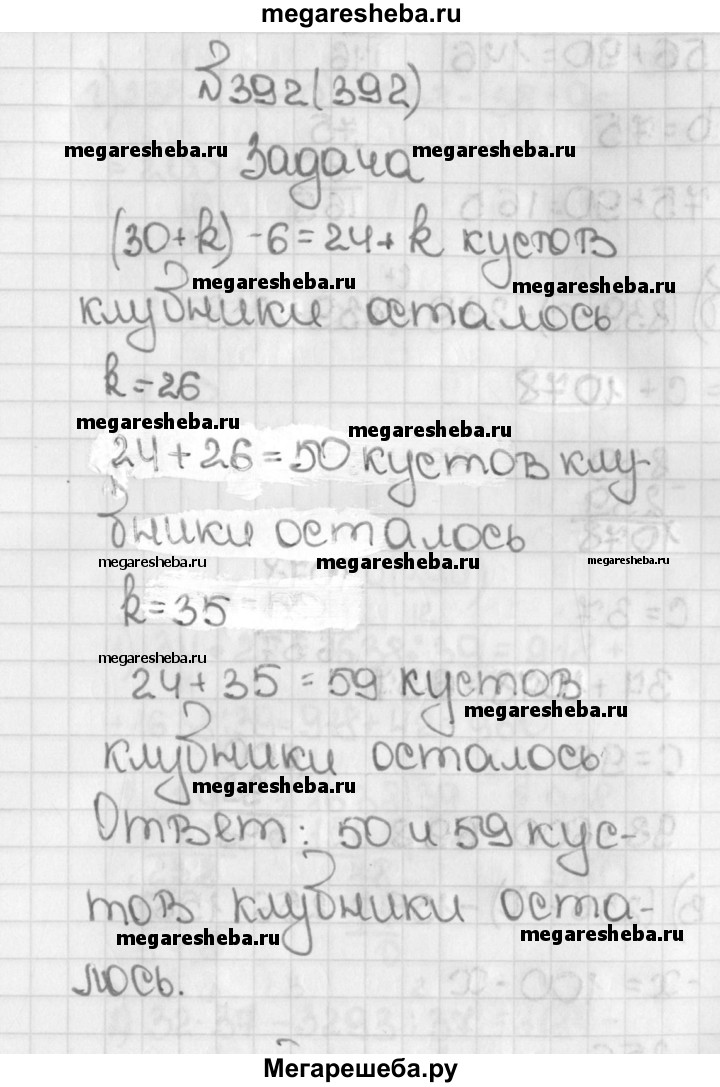 megaresheba.ru
№392(392)
megaresheba.ru Задача megaresheba.ru
(30+k) -6=24+k кустов
megaresheba.ru megaresheba.ru
клубники осталось
k=26
megaresheba.ru megaresheba.ru
24+26=50 кустов клу-
бники осталось
megaresheba.ru megaresheba.ru megaresheba.ru
k=35
megaresheba.ru
24+35=59 кустов
megaresheba.ru
клубники осталось
megaresheba.ru
Ответ: 50 и 59 кус-
тов клубники оста-
megaresheba.ru megaresheba.ru
лось.
Мегарешеба.ру